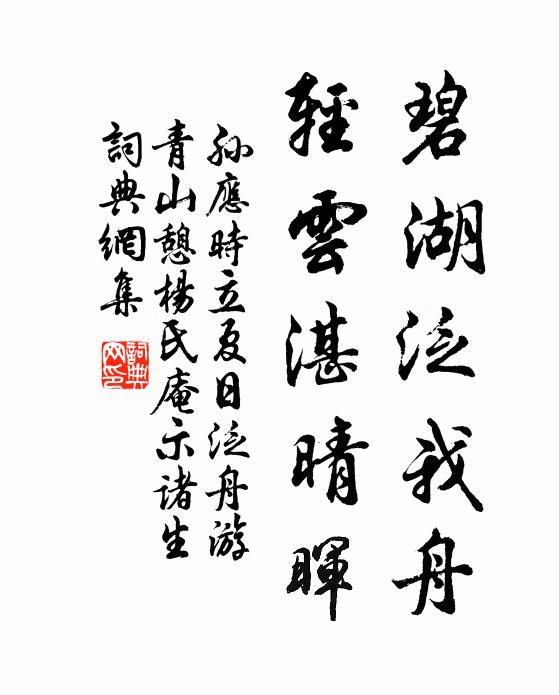 碧湖泛我舟
輕雲湛晴暉
孫應時立夏日泛舟游
青山憩楊氏庵示諸生
詞典網集
詞典网印